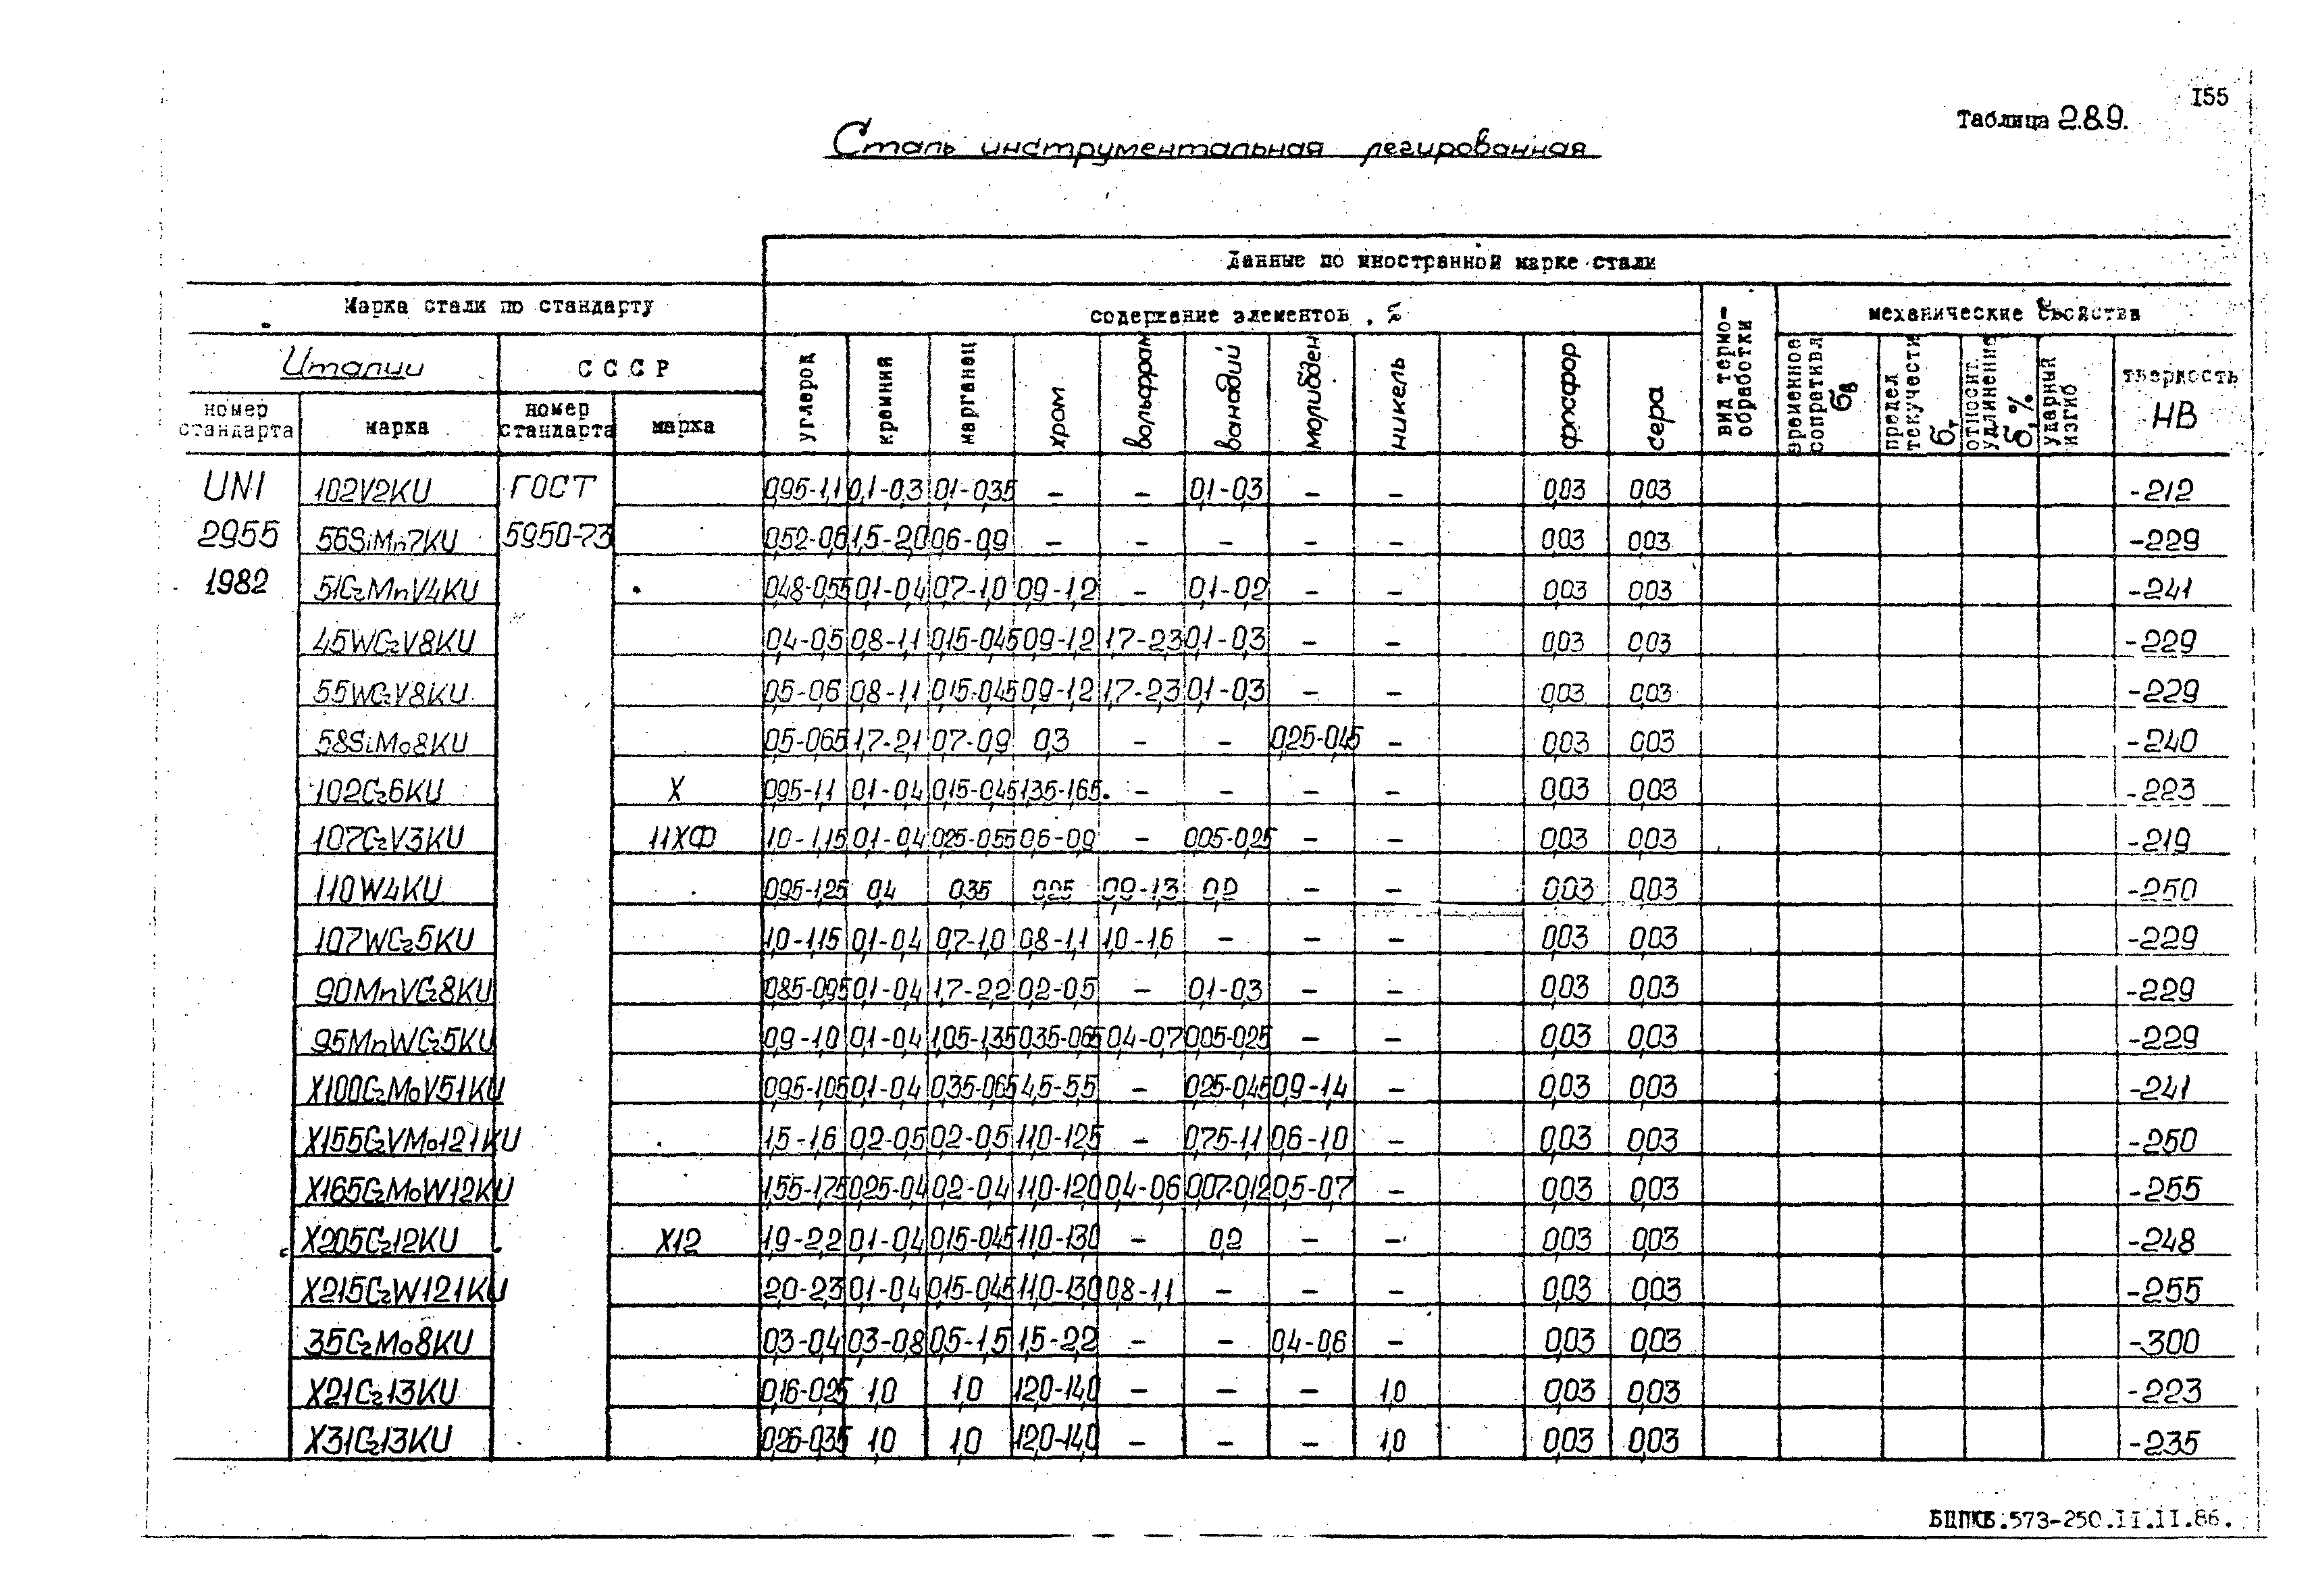 155
Таблица 2.8.9.
Сталь инструментальная легированная
Данные по иностранной марке стали
Марка стали по стандарту
содержание элементов, %
вид термо-обработки
механические свойства
Италии
СССР
углерод
кремния
марганец
хром
вольфрам
ванадий
молибден
никель
фосфор
сера
временное сопративл σв
предел текучести σт
относит. удлинение δ, %
ударный изгиб
твердость НВ
номер стандарта
марка
номер стандарта
марка
UNI 102V2KU ГОСТ 0,95-1,1 0,1-0,3 0,1-0,35 – – 0,1-0,3 – – 0,03 0,03 -212
2955 56SiMn7KU 5950-73 0,52-0,6 1,5-2,0 0,6-0,9 – – – – – 0,03 0,03 -229
1982 51CrMnV4KU 0,48-0,55 0,1-0,4 0,7-1,0 0,9-1,2 – 0,1-0,2 – – 0,03 0,03 -241
45WCrV8KU 0,4-0,5 0,8-1,1 0,15-0,45 0,9-1,2 1,7-2,3 0,1-0,3 – – 0,03 0,03 -229
55WCrV8KU 0,5-0,6 0,8-1,1 0,15-0,45 0,9-1,2 1,7-2,3 0,1-0,3 – – 0,03 0,03 -229
58SiMo8KU 0,5-0,65 1,7-2,1 0,7-0,9 0,3 – – 0,25-0,45 – 0,03 0,03 -240
102Cr6KU Х 0,95-1,1 0,1-0,4 0,15-0,45 1,35-1,65 – – – – 0,03 0,03 -223
107CrV3KU 11ХФ 1,0-1,15 0,1-0,4 0,25-0,55 0,6-0,9 – 0,05-0,25 – – 0,03 0,03 -219
110W4KU 0,95-1,25 0,4 0,35 0,25 0,9-1,3 0,2 – – 0,03 0,03 -250
107WCr5KU 1,0-1,15 0,1-0,4 0,7-1,0 0,8-1,1 1,0-1,6 – – – 0,03 0,03 -229
90MnVCr8KU 0,85-0,95 0,1-0,4 1,7-2,2 0,2-0,5 – 0,1-0,3 – – 0,03 0,03 -229
95MnWCr5KU 0,9-1,0 0,1-0,4 1,05-1,35 0,35-0,65 0,4-0,7 0,05-0,25 – – 0,03 0,03 -229
X100CrMoV51KU 0,95-1,05 0,1-0,4 0,35-0,65 4,5-5,5 – 0,25-0,45 0,9-1,4 – 0,03 0,03 -241
X155CrVMo121KU 1,5-1,6 0,2-0,5 0,2-0,5 11,0-12,5 – 0,75-1,1 0,6-1,0 – 0,03 0,03 -250
X165CrMoW12KU 1,55-1,75 0,25-0,4 0,2-0,4 11,0-12,0 0,4-0,6 0,07-0,12 0,5-0,7 – 0,03 0,03 -255
X205Cr12KU Х12 1,9-2,2 0,1-0,4 0,15-0,45 11,0-13,0 – 0,2 – – 0,03 0,03 -248
X215CrW121KU 2,0-2,3 0,1-0,4 0,15-0,45 11,0-13,0 0,8-1,1 – – – 0,03 0,03 -255
35CrMo8KU 0,3-0,4 0,3-0,8 0,5-1,5 1,5-2,2 – – 0,4-0,6 – 0,03 0,03 -300
X21Cr13KU 0,16-0,25 1,0 1,0 12,0-14,0 – – – 1,0 0,03 0,03 -223
X31Cr13KU 0,26-0,35 1,0 1,0 12,0-14,0 – – – 1,0 0,03 0,03 -235
БЦПКБ.573-250.II.II.86.